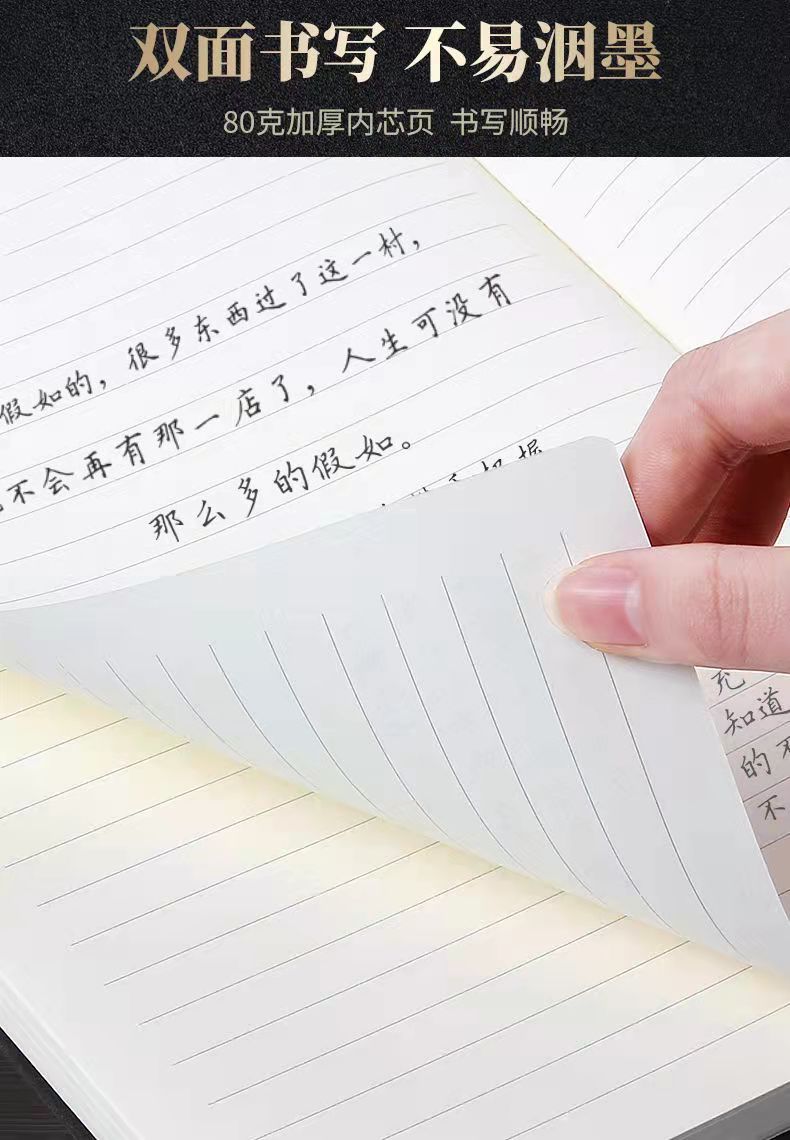 双面书写 不易洇墨
80克加厚内芯页 书写顺畅
很多东西过了这一村，
假如的，
不会再有那一店了，人生可没有
那么多的假如。
把握
充
知道
的不
不